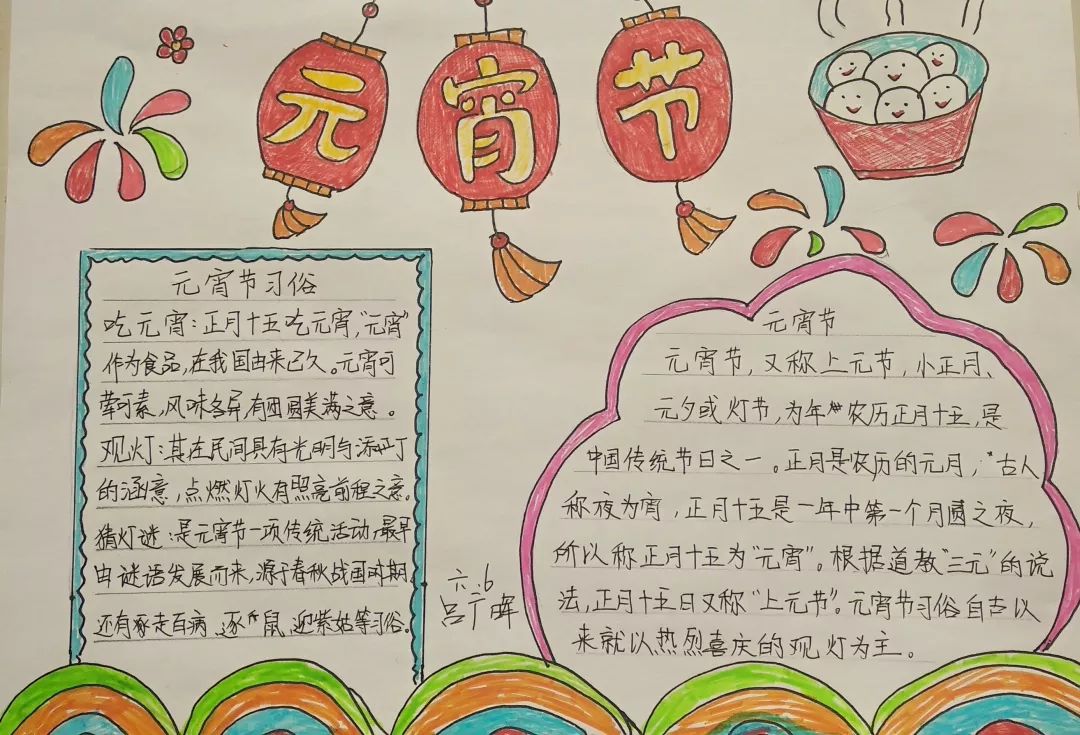 元宵节
元宵节习俗
吃元宵:正月十五吃元宵,“元宵”
作为食品,在我国由来已久。元宵可
荤可素,风味各异,有团圆美满之意。
观灯:其在民间具有光明与添丁
的涵意,点燃灯火有照亮前程之意。
猜灯谜:是元宵节一项传统活动,最早
由谜语发展而来,源于春秋战国时期。
还有走百病、逐鼠、迎紫姑等习俗。
六.6
吕广晖
元宵节
元宵节,又称上元节,小正月、
元夕或灯节,为年农历正月十五,是
中国传统节日之一。正月是农历的元月,古人
称夜为宵,正月十五是一年中第一个月圆之夜,
所以称正月十五为“元宵”。根据道教“三元”的说
法,正月十五日又称“上元节”。元宵节习俗自古以
来就以热烈喜庆的观灯为主。